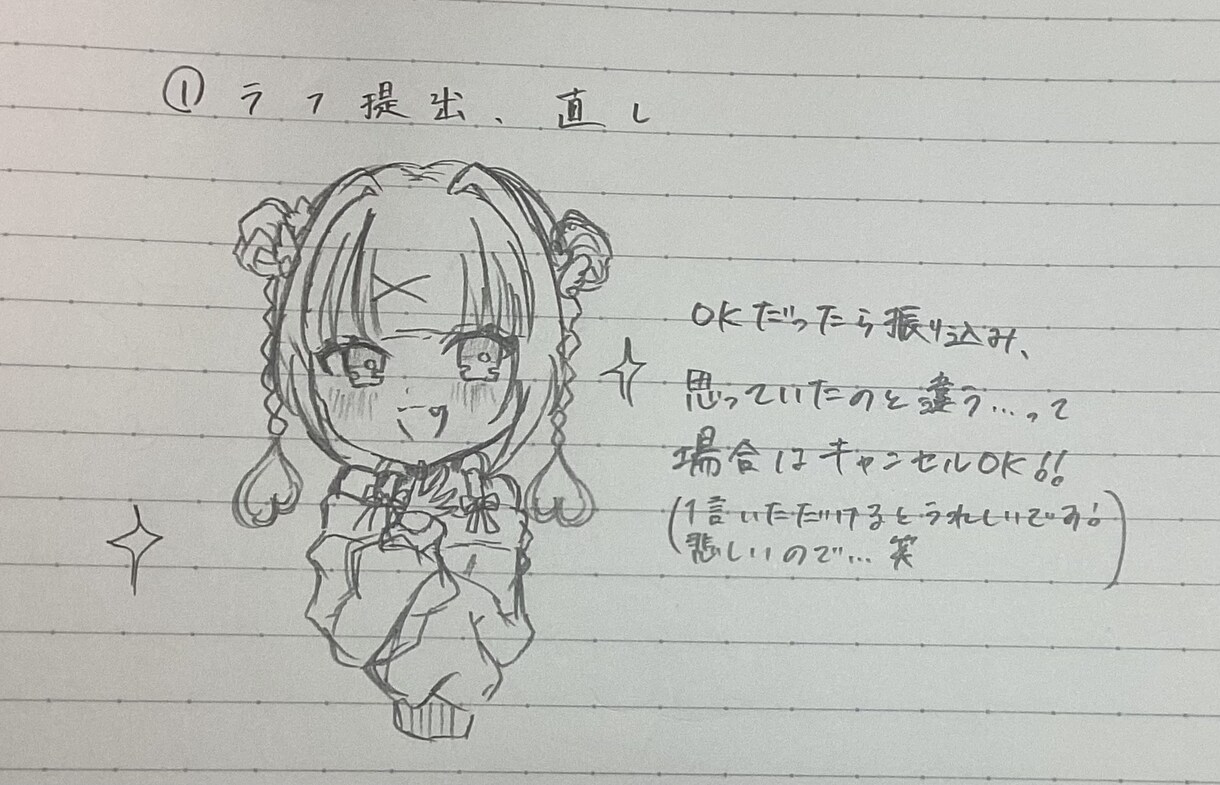 ① ラフ提出、直し
OKだったら振り込み、
思っていたのと違う…って
場合はキャンセルOK!!
(1言いただけるとうれしいです!
悲しいので…笑)